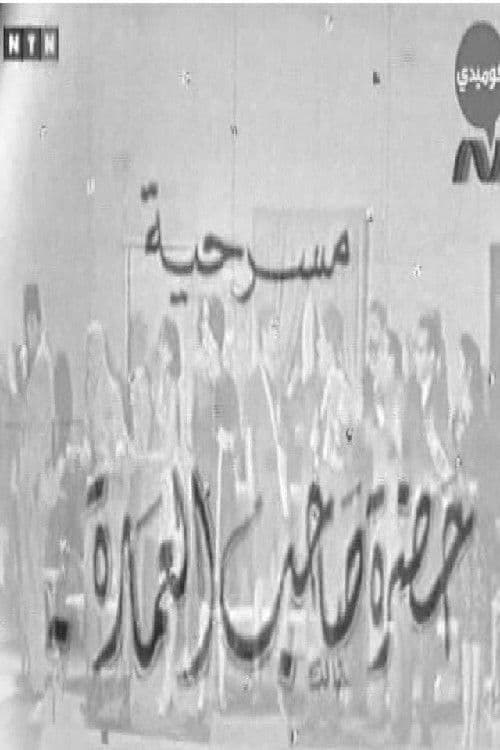 NTN
كوميدي
N
مسرحية
حضرة صاحب العمارة